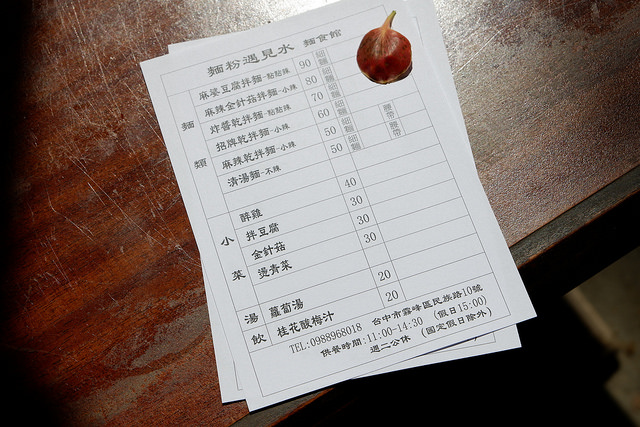 麵粉遇見水 麵食館
麵類
麻婆豆腐拌麵-點點辣 90 細麵
麻辣金針菇拌麵-小辣 80 細麵
炸醬乾拌麵-點點辣 70 細麵 腰帶
招牌乾拌麵-小辣 60 細麵 腰帶
麻辣乾拌麵-小辣 50 細麵
清湯麵-不辣 50 細麵
小菜
醉雞 40
拌豆腐 30
金針菇 30
燙青菜 30
湯 蘿蔔湯 20
飲 桂花酸梅汁 20
TEL:0988968018 台中市霧峰區民族路10號
供餐時間:11:00-14:30 (假日15:00)
週二公休 (國定假日除外)